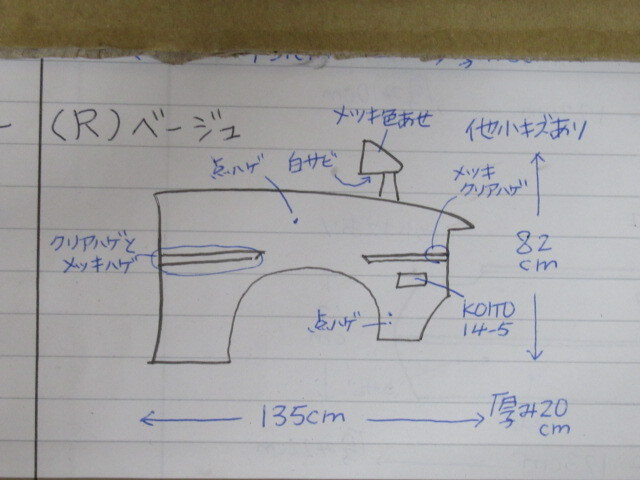 (R)ベージュ
メッキ色あせ
他小キズあり
点ハゲ
白サビ
メッキ
クリアハゲ
クリアハゲと
メッキハゲ
82
cm
点ハゲ
KOITO
14-5
135cm
厚み20
cm